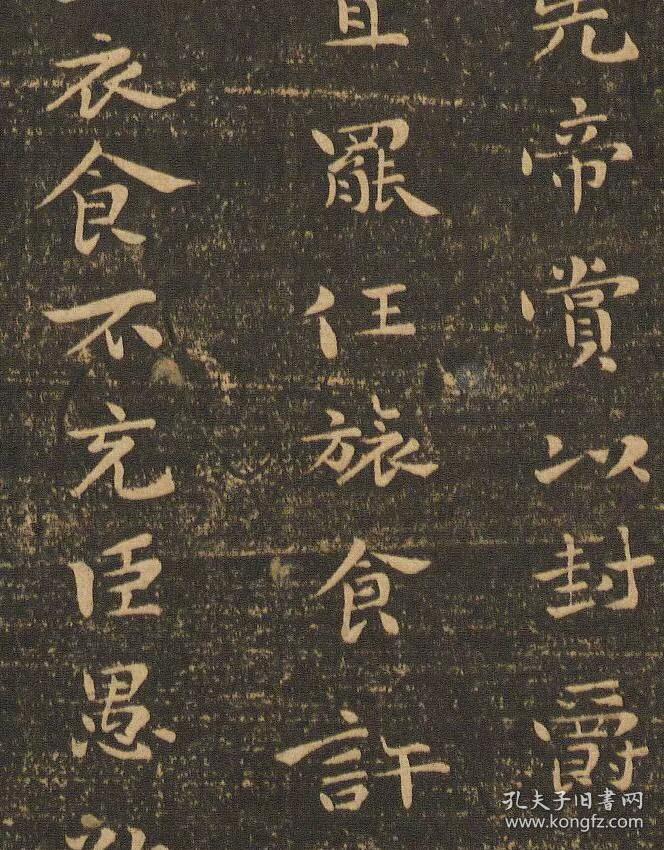 先帝賞以封爵
直罷任旅食許
衣食不充臣愚
孔夫子旧书网
www.kongfz.com